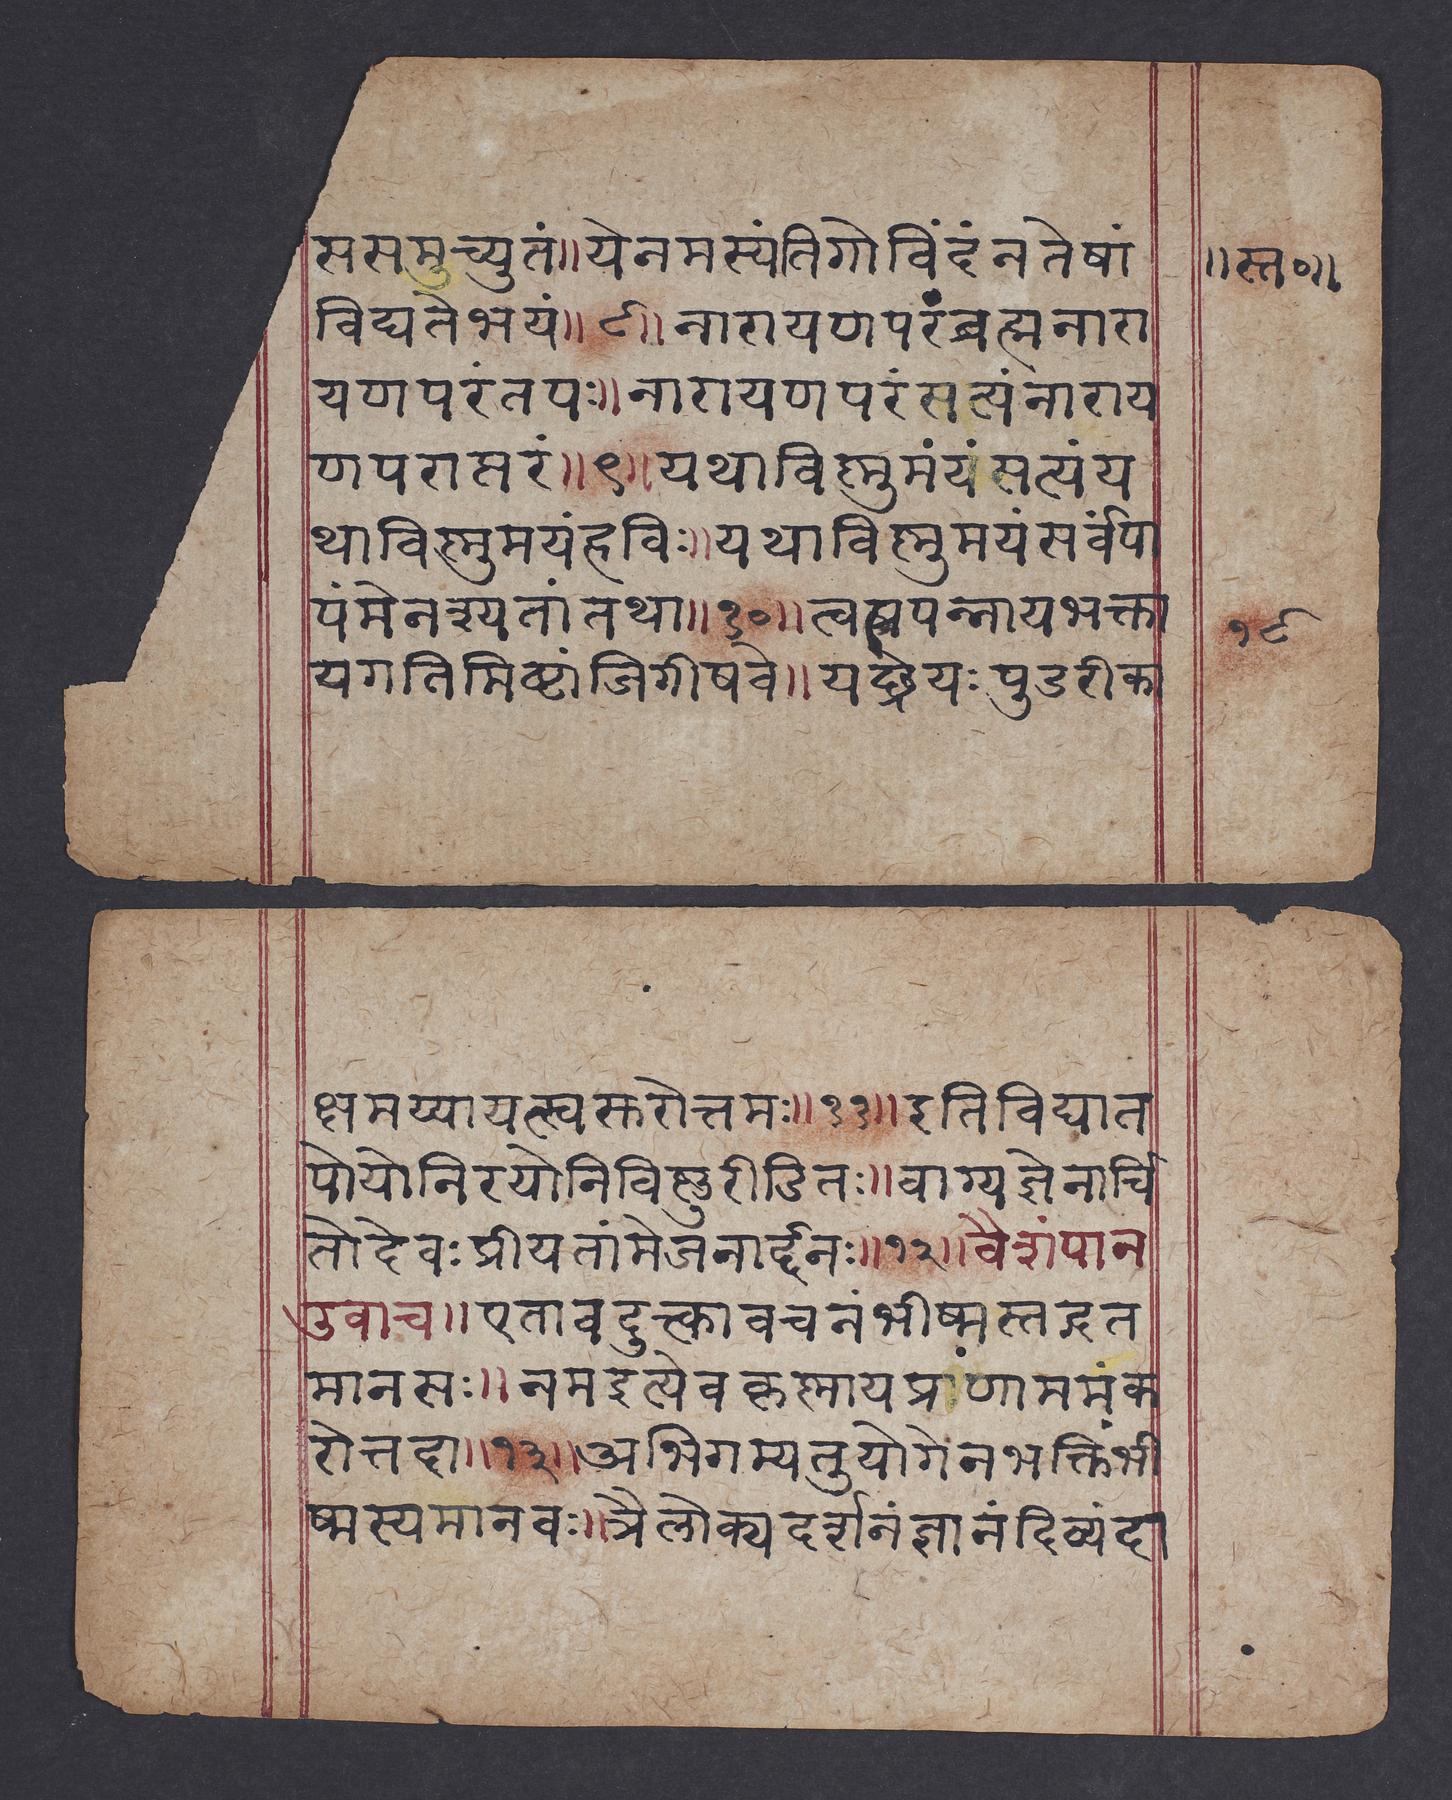 ससमुच्युतं॥येनमस्यंतिगोविंदंनतेषां
॥स्त०॥
विद्यतेभयं॥८॥नारायणपरंब्रह्मनारा
यणपरंतपः॥नारायणपरंसत्यंनाराय
णपरात्मरं॥९॥यथाविष्णुमंयंसत्यंय
थाविष्णुमयंहविः॥यथाविष्णुमयंसर्वंपा
पंमेनश्यतांतथा॥१०॥त्वत्प्रपन्नायभक्ता
१८
यगतिमिष्टांजिगीषवे॥यच्छ्रेयःपुडरीका
क्षमय्यायत्स्वसरोत्तमः॥११॥इतिविद्यात
पोयोनिरयोनिविष्णुरीडितः॥वाग्यज्ञेनार्चि
तोदेवःप्रीयतांमेजनार्द्दनः॥१२॥वैशंपान
उवाच॥एतावदुक्त्कावचनंभीष्मस्तद्गत
मानसः॥नमइत्येवकृष्णायप्रांणाममंक
रोत्तदा॥१३॥अभिगम्यतुयोगेनभक्तिंभी
ष्मस्यमानवः॥त्रैलोक्यदर्शनंज्ञानंदिव्यंदा